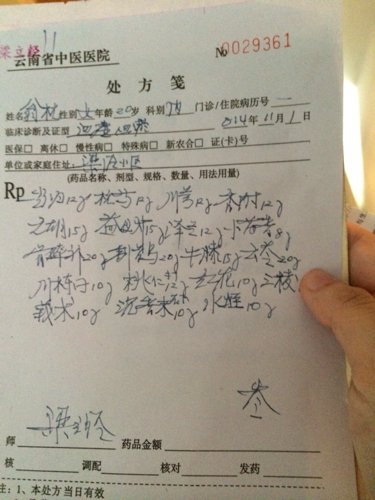 梁立经 11
云南省中医医院
№0029361
处方笺
姓名 性别 女 年龄 20岁 科别 内 门诊/住院病历号 一
临床诊断及证型 2014年11月1日
医保□ 离休□ 慢性病□ 特殊病□ 新农合□ 证(卡)号
单位或家庭住址: 小区
(药品名称、剂型、规格、数量、用法用量)
Rp 当归12g 12g 川芎12g 香附12g
15g 益母草15g 泽兰12g 8g
骨碎补20g 20g 牛膝15g 20g
川楝子10g 桃仁12g 红花10g 三棱
莪术10g 沉香末10g 水蛭10g
师 药品金额
核 调配 核对 发药
注:1、本处方当日有效